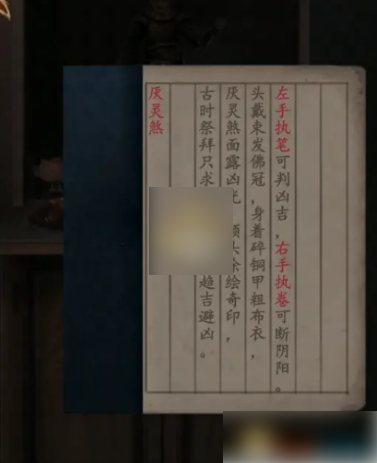 厌灵煞
古时祭拜只求趋吉避凶。
厌灵煞面露凶光，额头涂绘奇印，
头戴束发佛冠，身着碎铜甲粗布衣，
左手执笔可判凶吉，右手执卷可断阴阳。